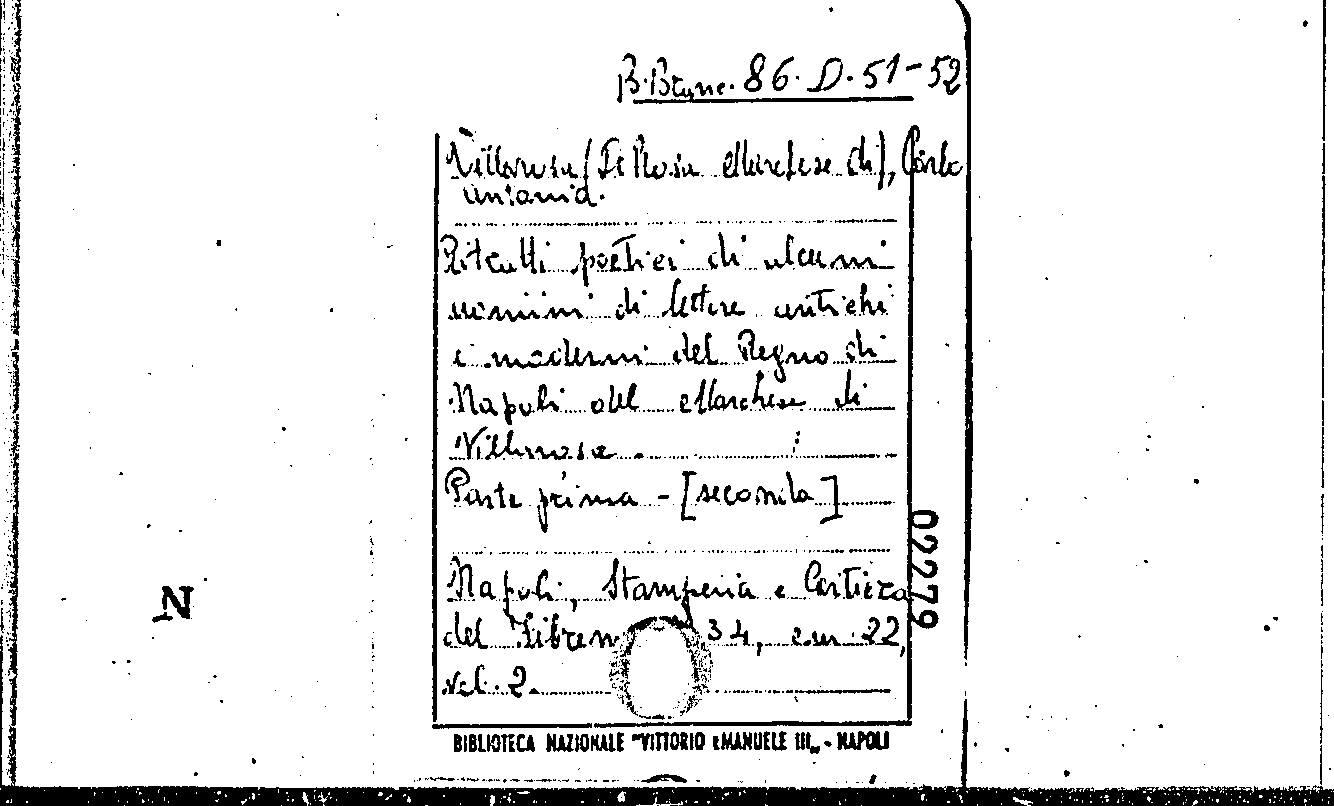 B. Branc. 86. D. 51-52
Villarosa (De Rosa Marchese di), Carlo
Antonio.
Ritratti poetici di alcuni
uomini di lettere antichi
e moderni del Regno di
Napoli del Marchese di
Villarosa.
Parte prima - [seconda]
Napoli, Stamperia e Cartiera
del Fibreno 34, cm. 22,
vol. 2.
02279
N
BIBLIOTECA NAZIONALE "VITTORIO EMANUELE III„ - NAPOLI